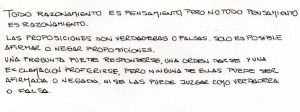 TODO RAZONAMIENTO ES PENSAMIENTO, PERO NO TODO PENSAMIENTO
ES RAZONAMIENTO.
LAS PROPOSICIONES SON VERDADERAS O FALSAS. SOLO ES POSIBLE
AFIRMAR O NEGAR PROPOSICIONES.
UNA PREGUNTA PUEDE RESPONDERSE, UNA ORDEN DARSE Y UNA
EXCLAMACIÓN PROFERIRSE, PERO NINGUNA DE ELLAS PUEDE SER
AFIRMADA O NEGADA, NI SE LAS PUEDE JUZGAR COMO VERDADERA
O FALSA.